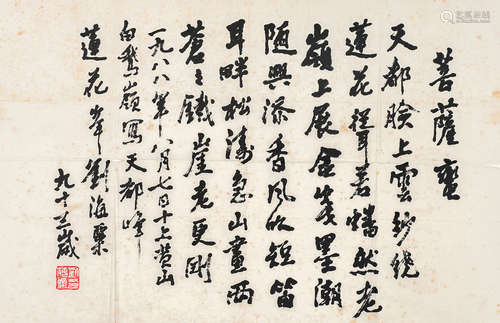 菩薩蠻
天都臉上雲紗繞
蓮花 若 然老
嶺上展金箋墨潮
隨興添香風吹短笛
耳畔松濤急山畫兩
蒼々鐵崖老更剛
一九八八年八月七日十上黃山
白鵝嶺寫天都峰
蓮花峯劉海粟
九十三歲